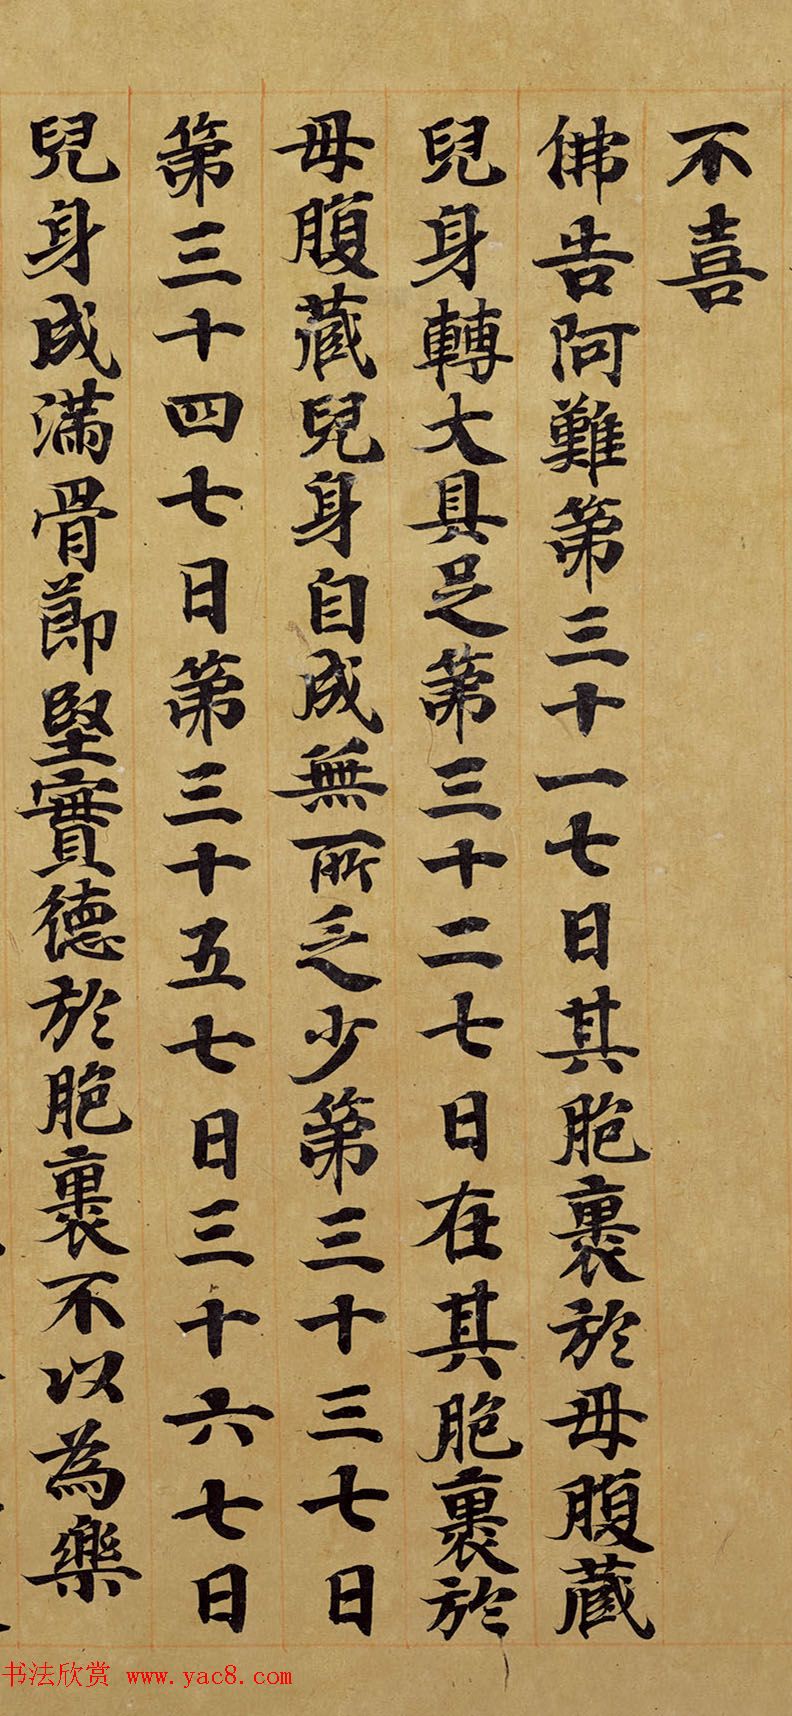 不喜
佛告阿難第三十一七日其胞裹於母腹藏
兒身轉大具足第三十二七日在其胞裹於
母腹藏兒身自成無所乏少第三十三七日
第三十四七日第三十五七日三十六七日
兒身成滿骨節堅實德於胞裹不以為樂
书法欣赏 www.yac8.com